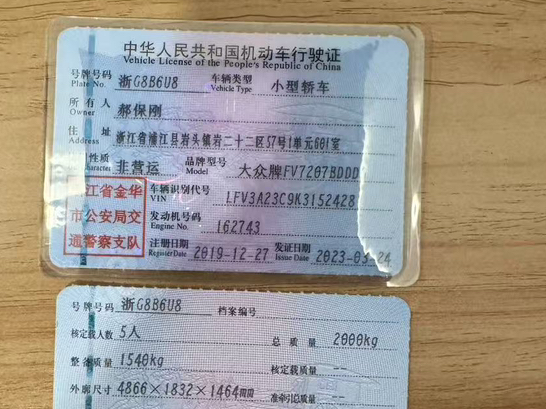 中华人民共和国机动车行驶证
Vehicle License of the People's Republic of China
号牌号码 浙G8B6U8 车辆类型 小型轿车
Plate No. Vehicle Type
所有人 郝保刚
Owner
住址 浙江省浦江县岩头镇岩二十二区57号1单元601室
Address
性质 非营运 品牌型号 大众牌FV7207BDDD
Character Model
江省金华
市公安局交
通警察支队
车辆识别代号 LFV3A23C9K3152428
VIN
发动机号码 162743
Engine No.
注册日期 2019-12-27 发证日期 2023-03-24
Register Date Issue Date
号牌号码 浙G8B6U8 档案编号
核定载人数 5人 总质量 2000kg
整备质量 1540kg 核定载质量 --
外廓尺寸 4866×1832×1464mm 准牵引总质量 --